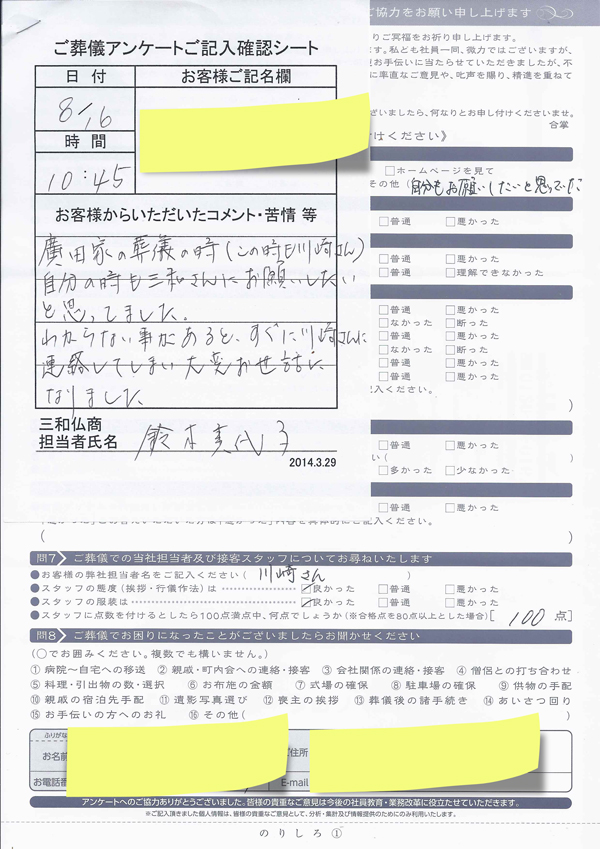 ご協力をお願い申し上げます
りご冥福をお祈り申し上げます。
ます。私ども社員一同、微力ではございますが、
お手伝いに当たらせていただきましたが、不
に率直なご意見や、叱声を賜り、精進を重ねて
ざいましたら、何なりとお申し付けくださいませ。
合掌
けください》
ご葬儀アンケートご記入確認シート
日付 お客様ご記名欄
8/16
時間
10:45
お客様からいただいたコメント・苦情 等
廣田家の葬儀の時(この時も川崎さん)
自分の時も三和さんにお願いしたい
と思ってました。
わからない事があると、すぐに川崎さんに
連絡してしまい大変お世話に
なりました
三和仏商
担当者氏名 鈴木
2014.3.29
□ホームページを見て
その他(自分もお願いしたいと思っていた
□普通 □悪かった
□普通 □悪かった
□普通 □理解できなかった
□普通 □悪かった
□なかった □断った
□普通 □悪かった
□なかった □断った
□普通 □悪かった
□普通 □悪かった
記入ください。
)
□普通 □悪かった
い( )
□多かった □少なかった
□普通 □悪かった
ご記入ください。
( )
問7 ご葬儀での当社担当者及び接客スタッフについてお尋ねいたします
●お客様の弊社担当者名をご記入ください( 川崎さん )
●スタッフの態度(挨拶・行儀作法)は ☑良かった □普通 □悪かった
●スタッフの服装は ☑良かった □普通 □悪かった
●スタッフに点数を付けるとしたら100点満点中、何点でしょうか(※合格点を80点以上とした場合)[ 100 点]
問8 ご葬儀でお困りになったことがございましたらお聞かせください
(○でお囲みください。複数でも構いません。)
①病院〜自宅への移送 ②親戚・町内会への連絡・接客 ③会社関係の連絡・接客 ④僧侶との打ち合わせ
⑤料理・引出物の数・選択 ⑥お布施の金額 ⑦式場の確保 ⑧駐車場の確保 ⑨供物の手配
⑩親戚の宿泊先手配 ⑪遺影写真選び ⑫喪主の挨拶 ⑬葬儀後の諸手続き ⑭あいさつ回り
⑮お手伝いの方へのお礼 ⑯その他( )
ふりがな
お名前 ご住所
お電話番 E-mail
アンケートへのご協力ありがとうございました。皆様の貴重なご意見は今後の社員教育・業務改革に役立たせていただきます。
※ご記入頂きました個人情報は、皆様の貴重なご意見として、分析・集計及び情報提供のためにのみ利用いたします。
のりしろ①